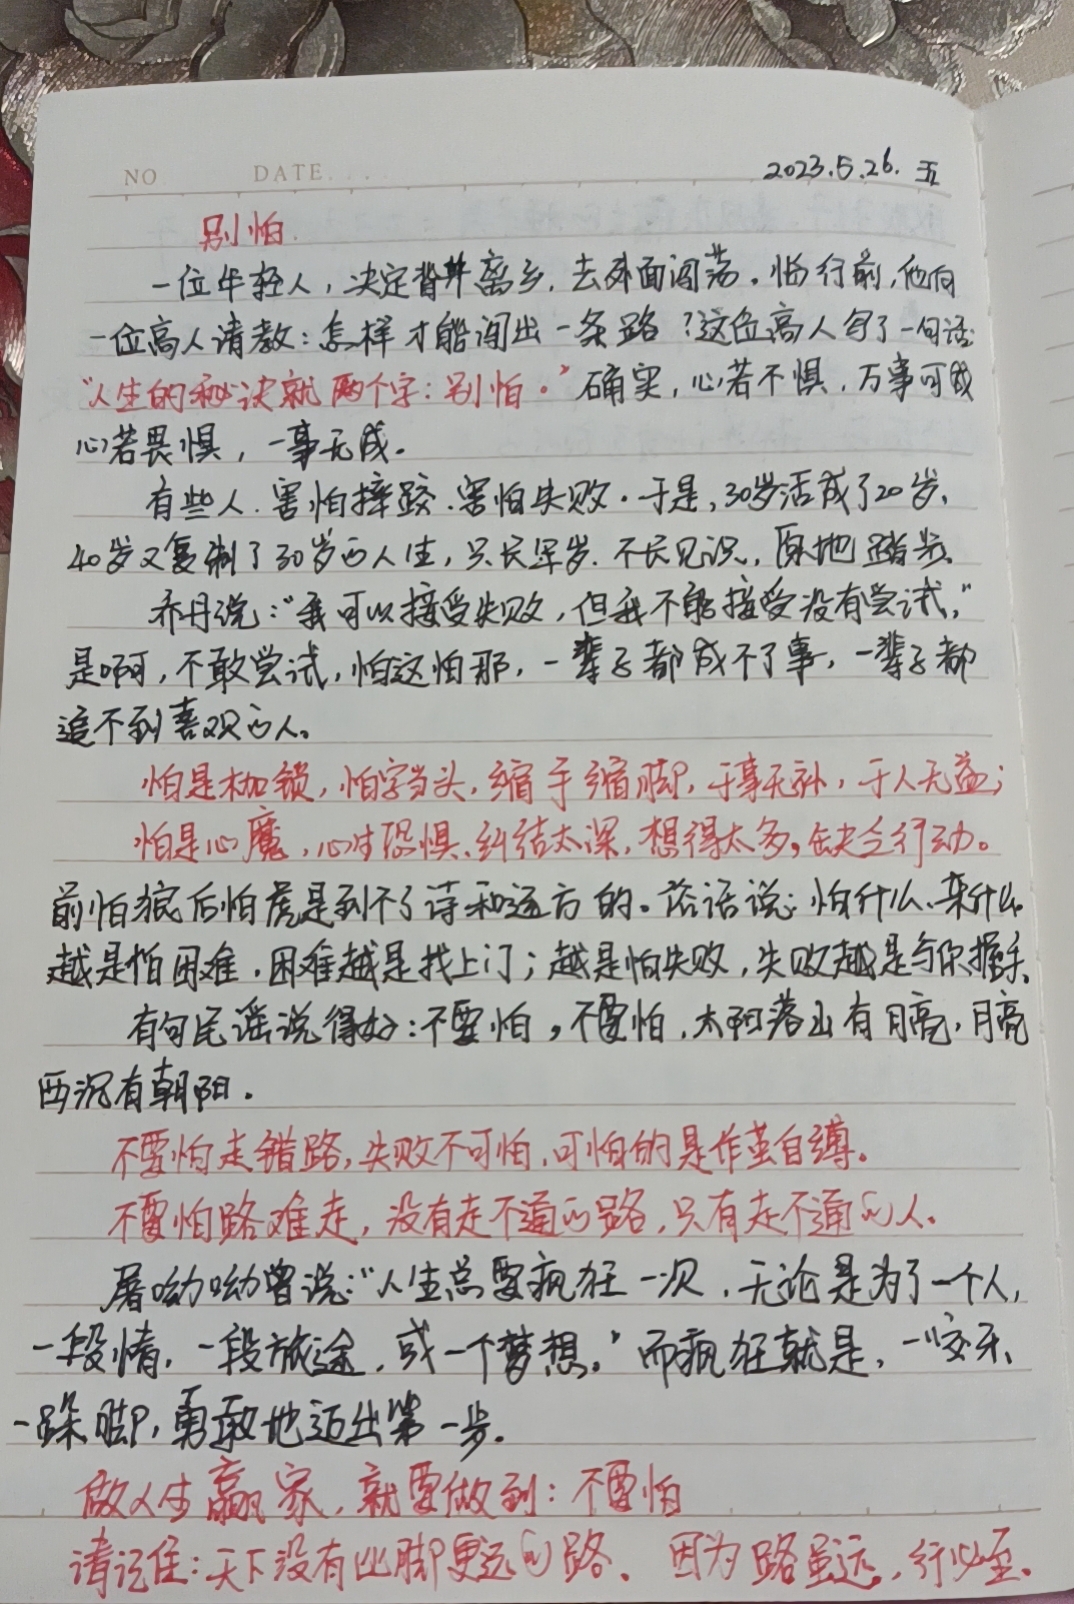 NO DATE.... 2023.5.26. 五
别怕.
一位年轻人，决定背井离乡，去外面闯荡。临行前，他向
一位高人请教：怎样才能闯出一条路？这位高人写了一句话：
“人生的秘诀就两个字：别怕。”确实，心若不惧，万事可成
心若畏惧，一事无成。
有些人、害怕摔跤、害怕失败。于是，30岁活成了20岁，
40岁又复制了30岁的人生，只长年岁、不长见识，原地踏步。
乔丹说：“我可以接受失败，但我不能接受没有尝试，”
是啊，不敢尝试，怕这怕那，一辈子都成不了事，一辈子都
追不到喜欢的人。
怕是枷锁，怕字当头，缩手缩脚，于事无补，于人无益；
怕是心魔，心生恐惧、纠结太深，想得太多，缺乏行动。
前怕狼后怕虎是到不了诗和远方的。俗话说：怕什么、来什么
越是怕困难，困难越是找上门；越是怕失败，失败越是与你握手、
有句民谣说得好：不要怕，不要怕，太阳落山有月亮，月亮
西沉有朝阳。
不要怕走错路，失败不可怕，可怕的是作茧自缚。
不要怕路难走，没有走不通的路，只有走不通的人。
屠呦呦曾说：“人生总要疯狂一次，无论是为了一个人，
一段情，一段旅途，或一个梦想。”而疯狂就是，一咬牙、
一跺脚，勇敢地迈出第一步。
做人生赢家，就要做到：不要怕
请记住：天下没有比脚更远的路。因为路虽远，行必至。